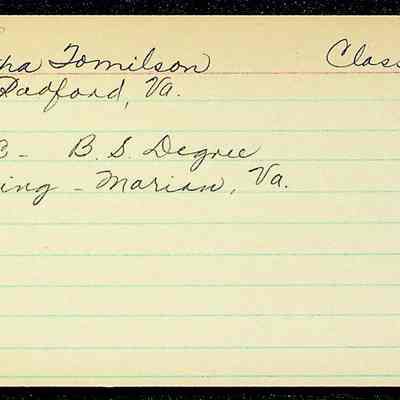 ha Tomilson Class
Radford, Va.
3 - B. S. Degree
ing - Marian, Va.